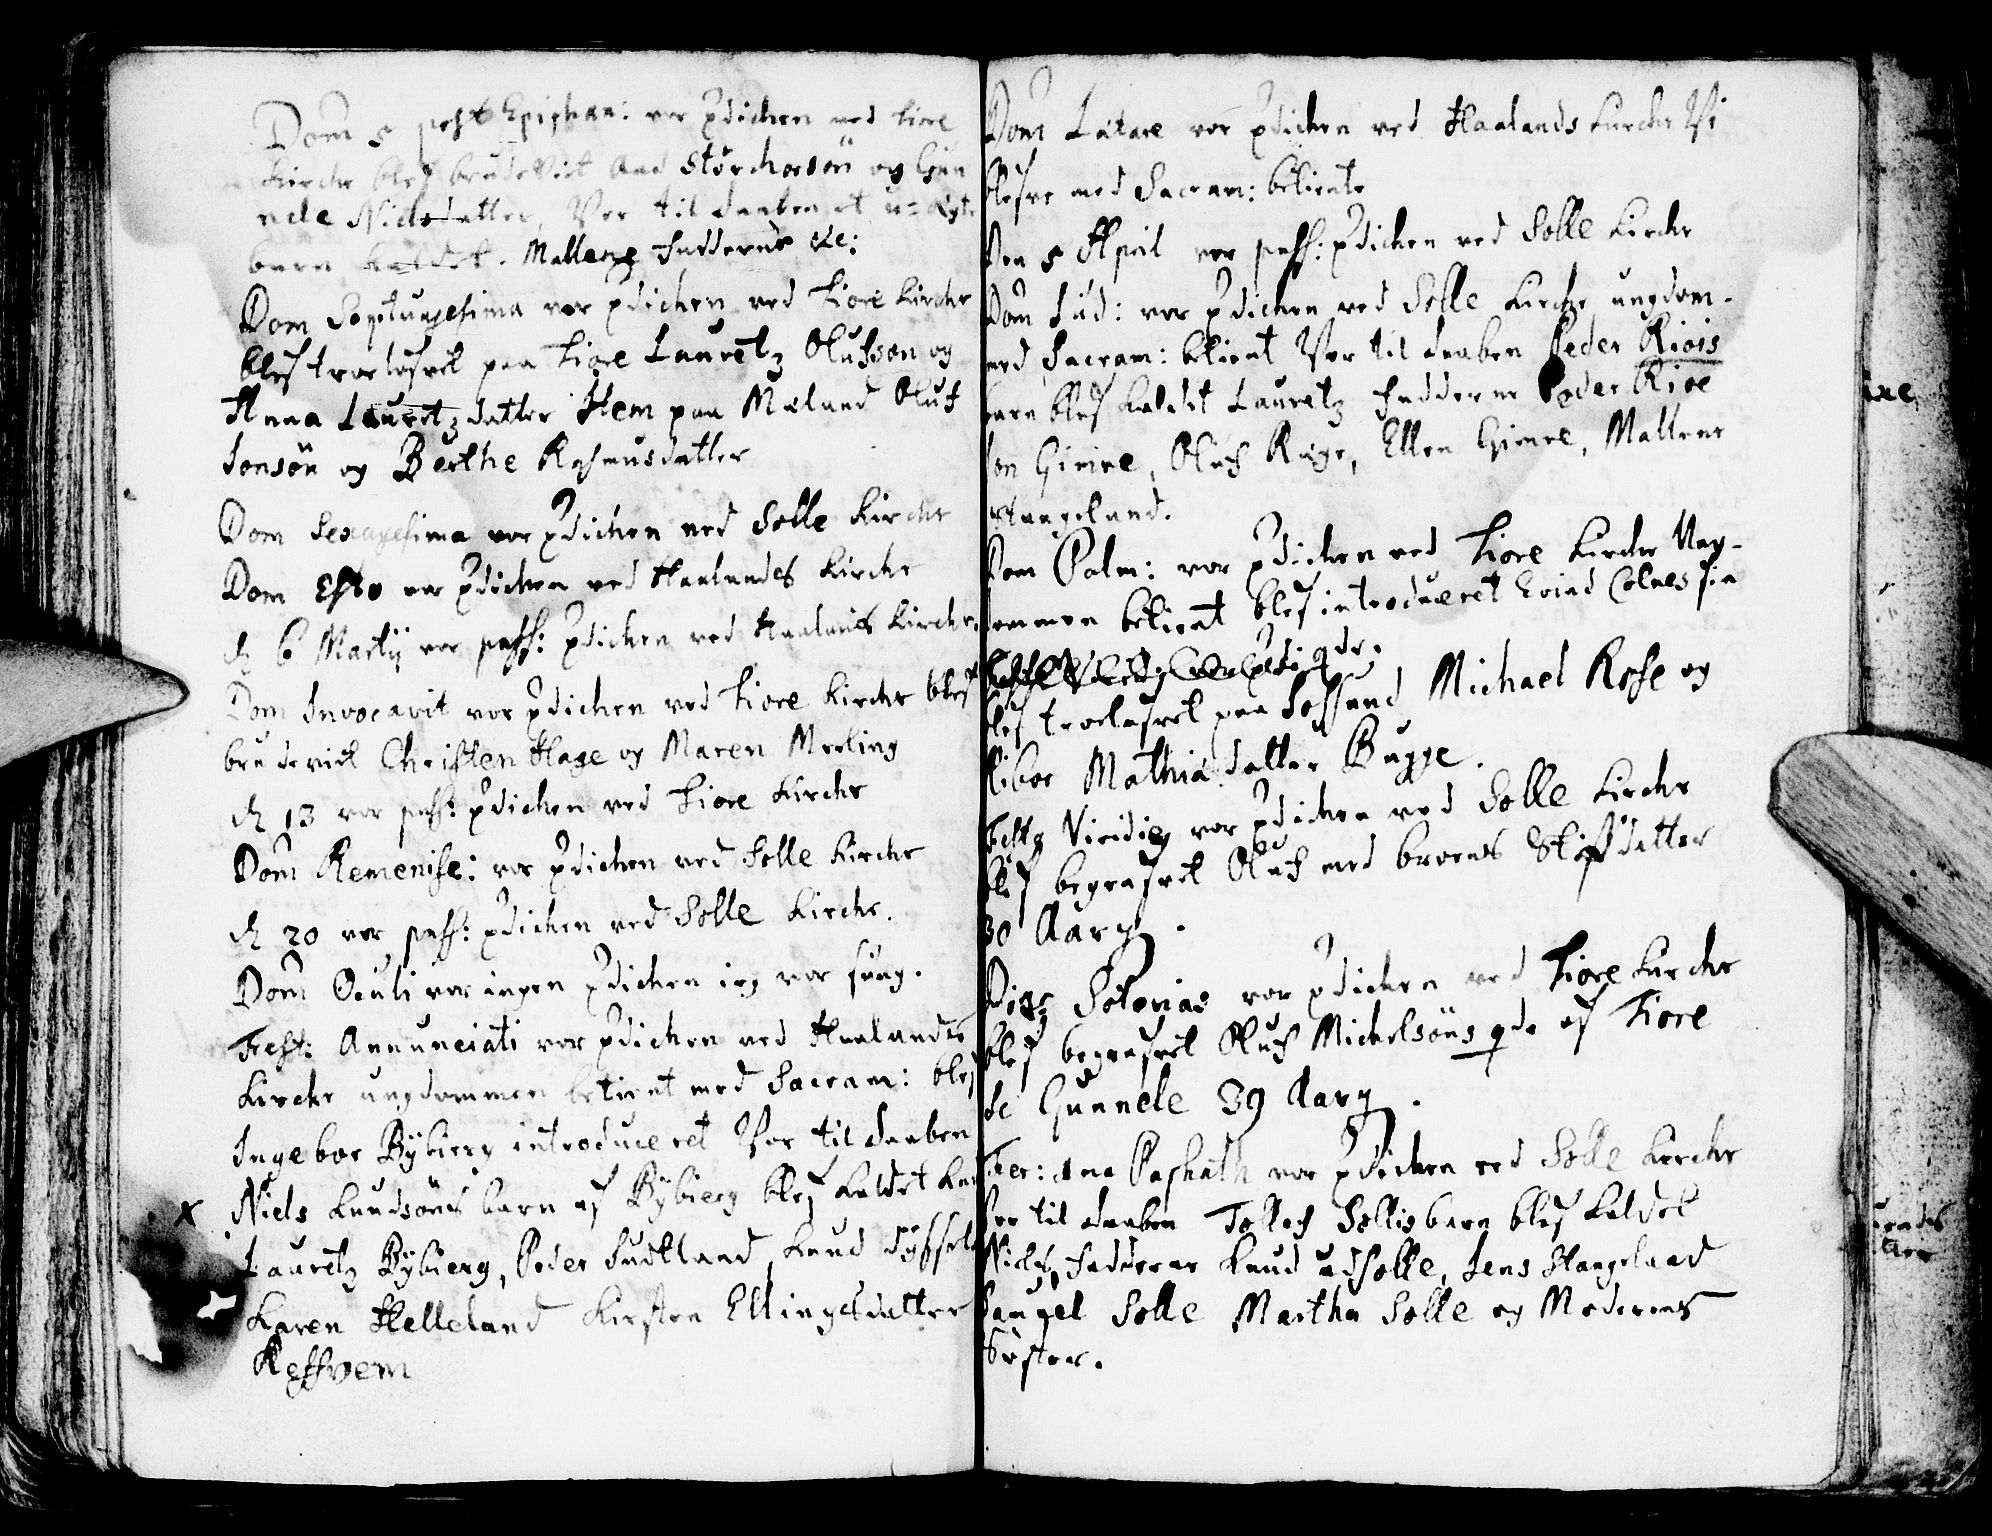 Dom 5 post Epiphan: var Pdicken ved Tiore
Kircke blef brudeviet Aad Stürchorsön og Gün
nele Nielsdatter, Var til daaben et u-ægte
barn kaldet. Mallene Fadderne &c:
Dom Septuagesima var Pdicken ved Tiore Kircke
blef troelofvet paa Tiore Lauretz Olufson og
Anna Lauretzdatter Item paa Mæland Oluf
Jonsön og Berthe Rasmusdatter
Dom Sexagesima var Pdicken ved Solle Kircke
Dom Esto var Pdicken ved Haalandes Kircke
d 6 Martij var pass: Pdicken ved Haalands Kircke
Dom Invocavit var Pdicken ved Tiore Kircke blef
brudeviet Christen Hage og Maren Meeling
d 13 var pass: Pdicken ved Tiore Kircke
Dom Remenise: var Pdicken ved Solle Kircke
d 20 var pass: Pdicken ved Solle Kircke.
Dom Oculi var ingen Pdicken ieg var siug.
Fest: Annunciati var Pdicken ved Haalandes
Kircke ungdommen betient med Sacram: blef
Ingebor Bÿbierg introduceret Var til daaben
x Niels Knudsöns barn af Bÿbierg blef kaldet
Lauretz Bÿbierg, Peder Sudtland Knud
Karen Helleland Kirsten Ellingsdatter
Refsvem
Dom Lætare var Pdicken ved Haalands Kircke Vi
blefve med Sacram: betiente
Den 5 April var pass: Pdicken ved Solle Kircke
Dom Jud: var Pdicken ved Solle Kircke ungdom-
med Sacram: betient Var til daaben Peder Riois
barn blef kaldet Lauretz Fadderne Peder Rioe
Jon Gimre, Oluf Rege, Ellen Gimre, Mallene
Stangeland.
Dom Palm: var Pdicken ved Tiore Kircke Ung-
dommen betient blef introduceret Evind Colnes sin
qde.
blef troelofvet paa Michael Rose og
Mathiadatter Bugge.
Festo Viridiū var Pdicken ved Solle Kircke
blef begrafvet Oluf med broens Stifdatter
30 Aarg.
Dies Soterias var Pdicken ved Tiore Kircke
blef begrafvet Oluf Michelsöns qde af Tiore
Gunnele 39 Aarg.
Fer: 1ma Paskath var Pdicken ved Solle Kircke
Var til daaben Tollef Sollis barn blef kaldet
Niels, Fadderne Knud udsolle, Jens Stangeland
Solle Martha Solle og Moderens
Söster.